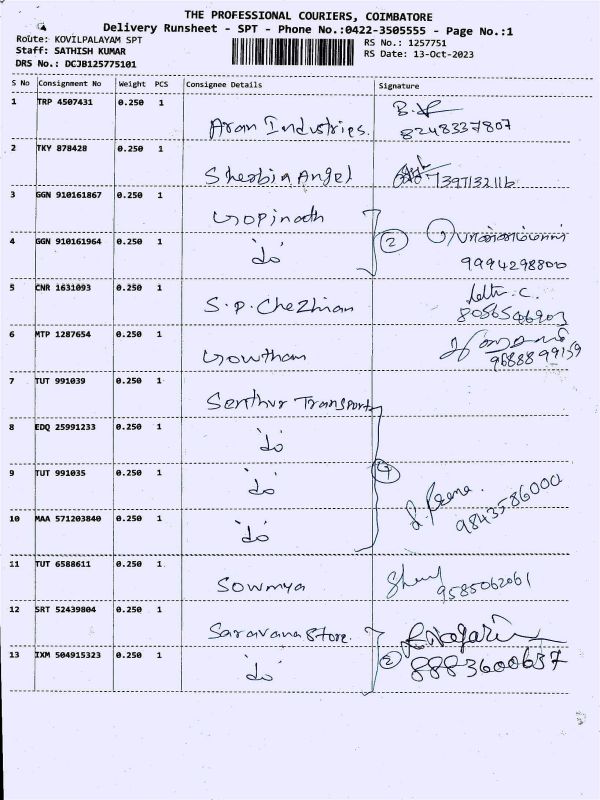 THE PROFESSIONAL COURIERS, COIMBATORE
Delivery Runsheet - SPT - Phone No.:0422-3505555 - Page No.:1
Route: KOVILPALAYAM SPT
RS No.: 1257751
Staff: SATHISH KUMAR
RS Date: 13-Oct-2023
DRS No.: DCJB125775101
S No Consignment No Weight PCS Consignee Details Signature
1 TRP 4507431 0.250 1
Aram Industries. 8248337807
2 TKY 878428 0.250 1
Sherbin Angel 7397132116
3 GGN 910161867 0.250 1
Gopinath
4 GGN 910161964 0.250 1 ② பொன்னம்மாள்
do 9994298800
5 CNR 1631093 0.250 1
S.P. Chezhian 8056546903
6 MTP 1287654 0.250 1
Gowtham 9688899159
7 TUT 991039 0.250 1
Senthur Transport
8 EDQ 25991233 0.250 1
do
9 TUT 991035 0.250 1 ④
do
10 MAA 571203840 0.250 1 9843586000
do
11 TUT 6588611 0.250 1
Sowmya 9585062061
12 SRT 52439804 0.250 1
Saravana Store.
13 IXM 504915323 0.250 1 ② 8883600637
do